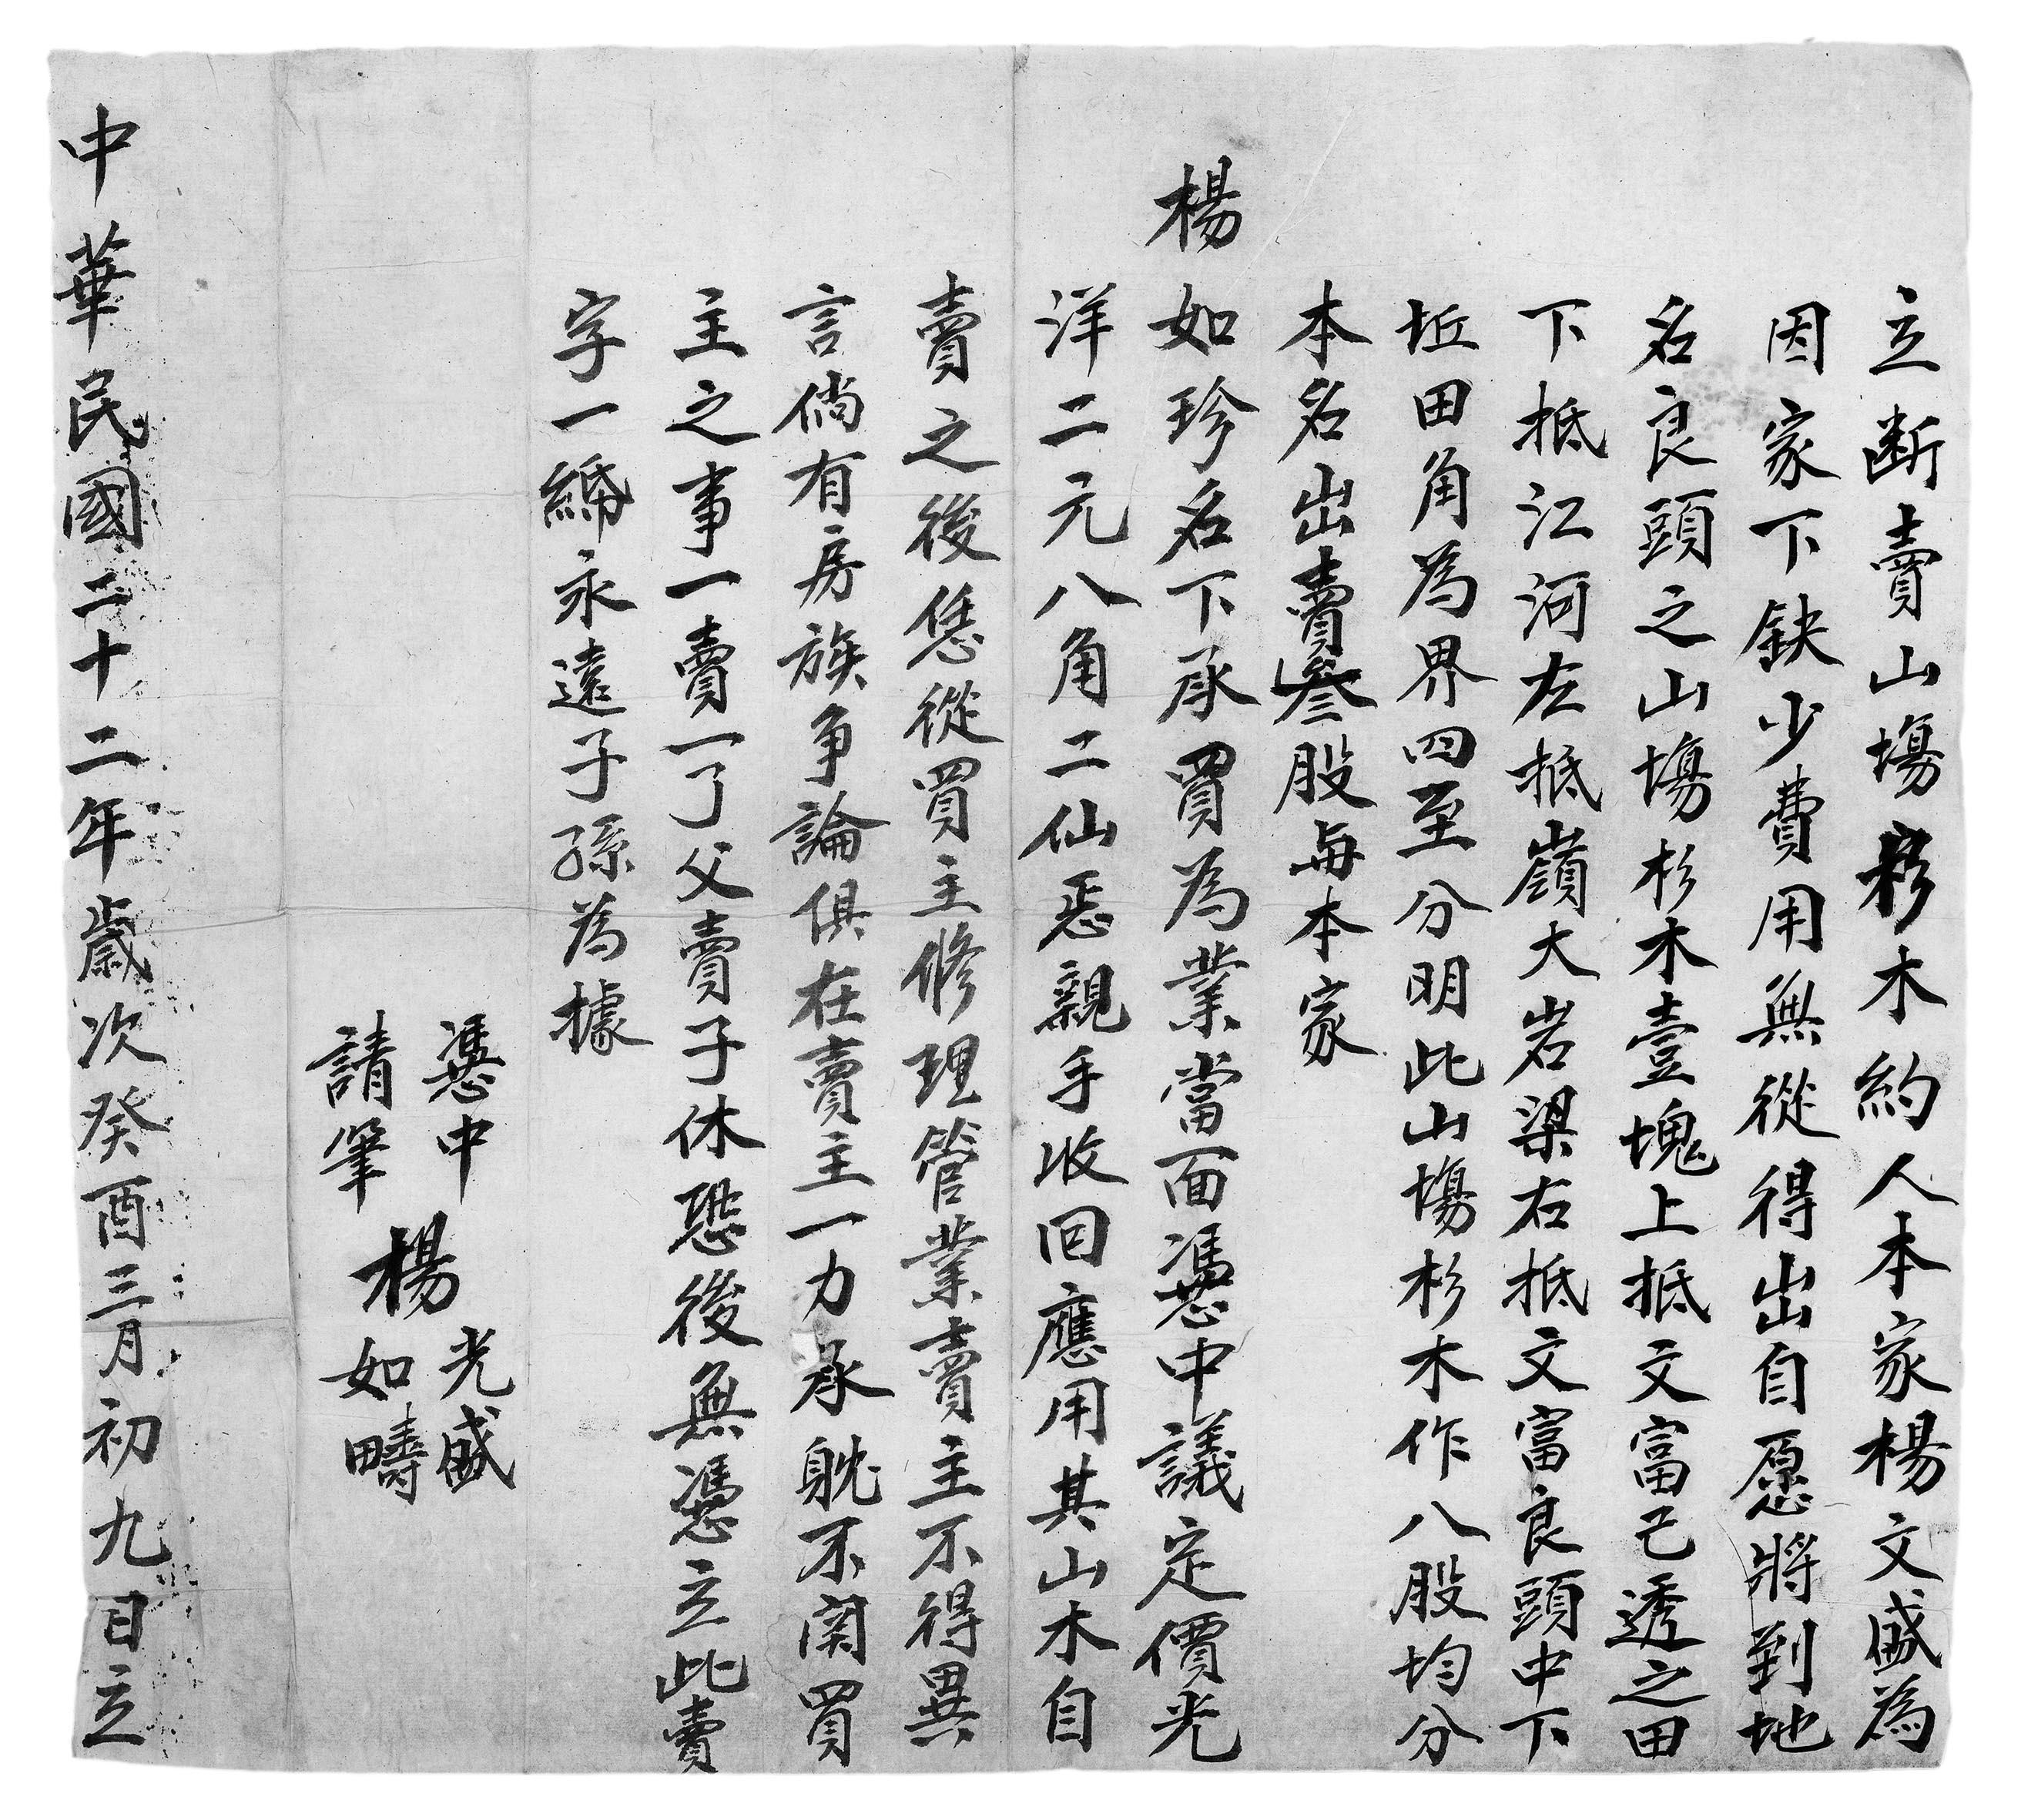 立断賣山塲杉木約人本家楊文盛為
因家下缺少費用無從得出自愿將到地
名良頭之山塲杉木壹塊上抵文富己透之田
下抵江河左抵嶺大岩梁右抵文富良頭中下
坵田角為界四至分明此山塲杉木作八股均分
本名出賣叁股與本家
楊如珍名下承買為業當面凴中議定價光
洋二元八角二仙正親手收回應用其山木自
賣之後恁從買主修理管業賣主不得異
言倘有房族争論俱在賣主一力承躭不関買
主之事一賣一了父賣子休恐後無凴立此賣
字一𥿄永遠子孫為據
凴中 楊光盛
請筆 楊如疇
中華民國二十二年歲次癸酉三月初九日立